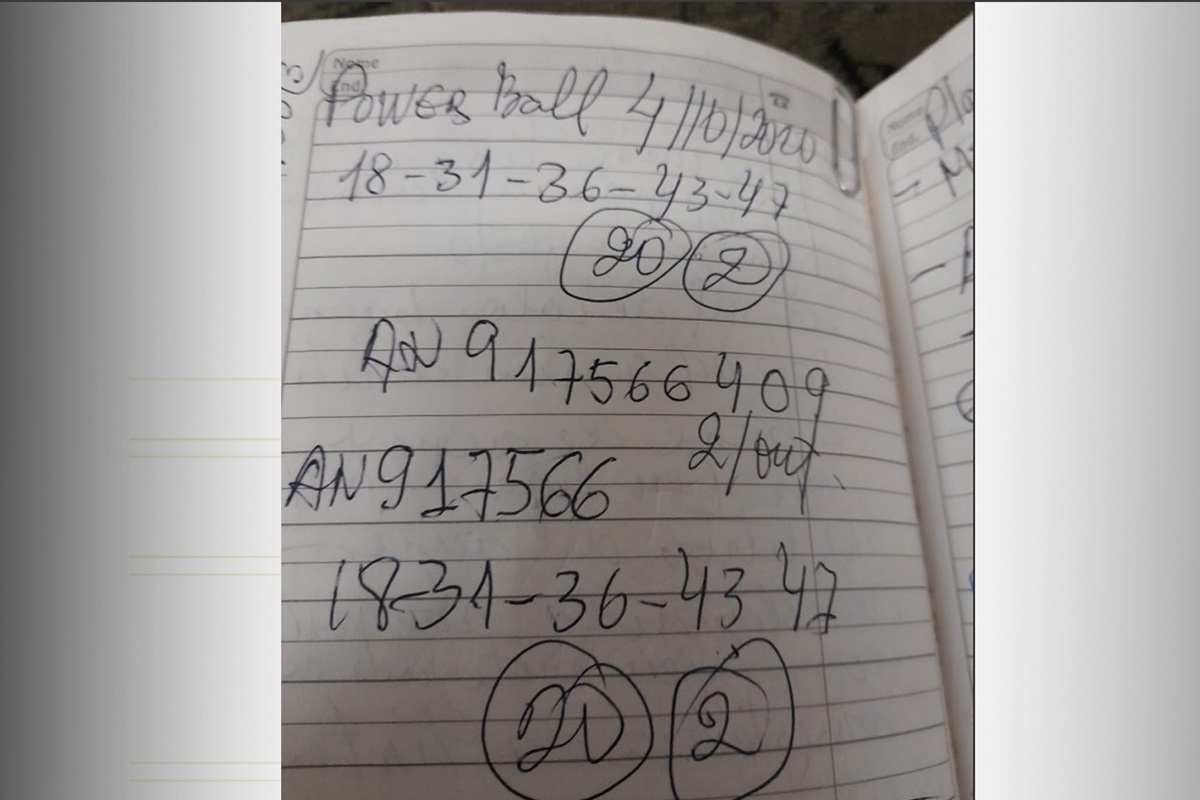 Name
End
POWER Ball 4/10/2020
18-31-36-43-47
20 2
AN 917566409
2/out.
AN917566
18-31-36-43 47
20 2
Name
End.